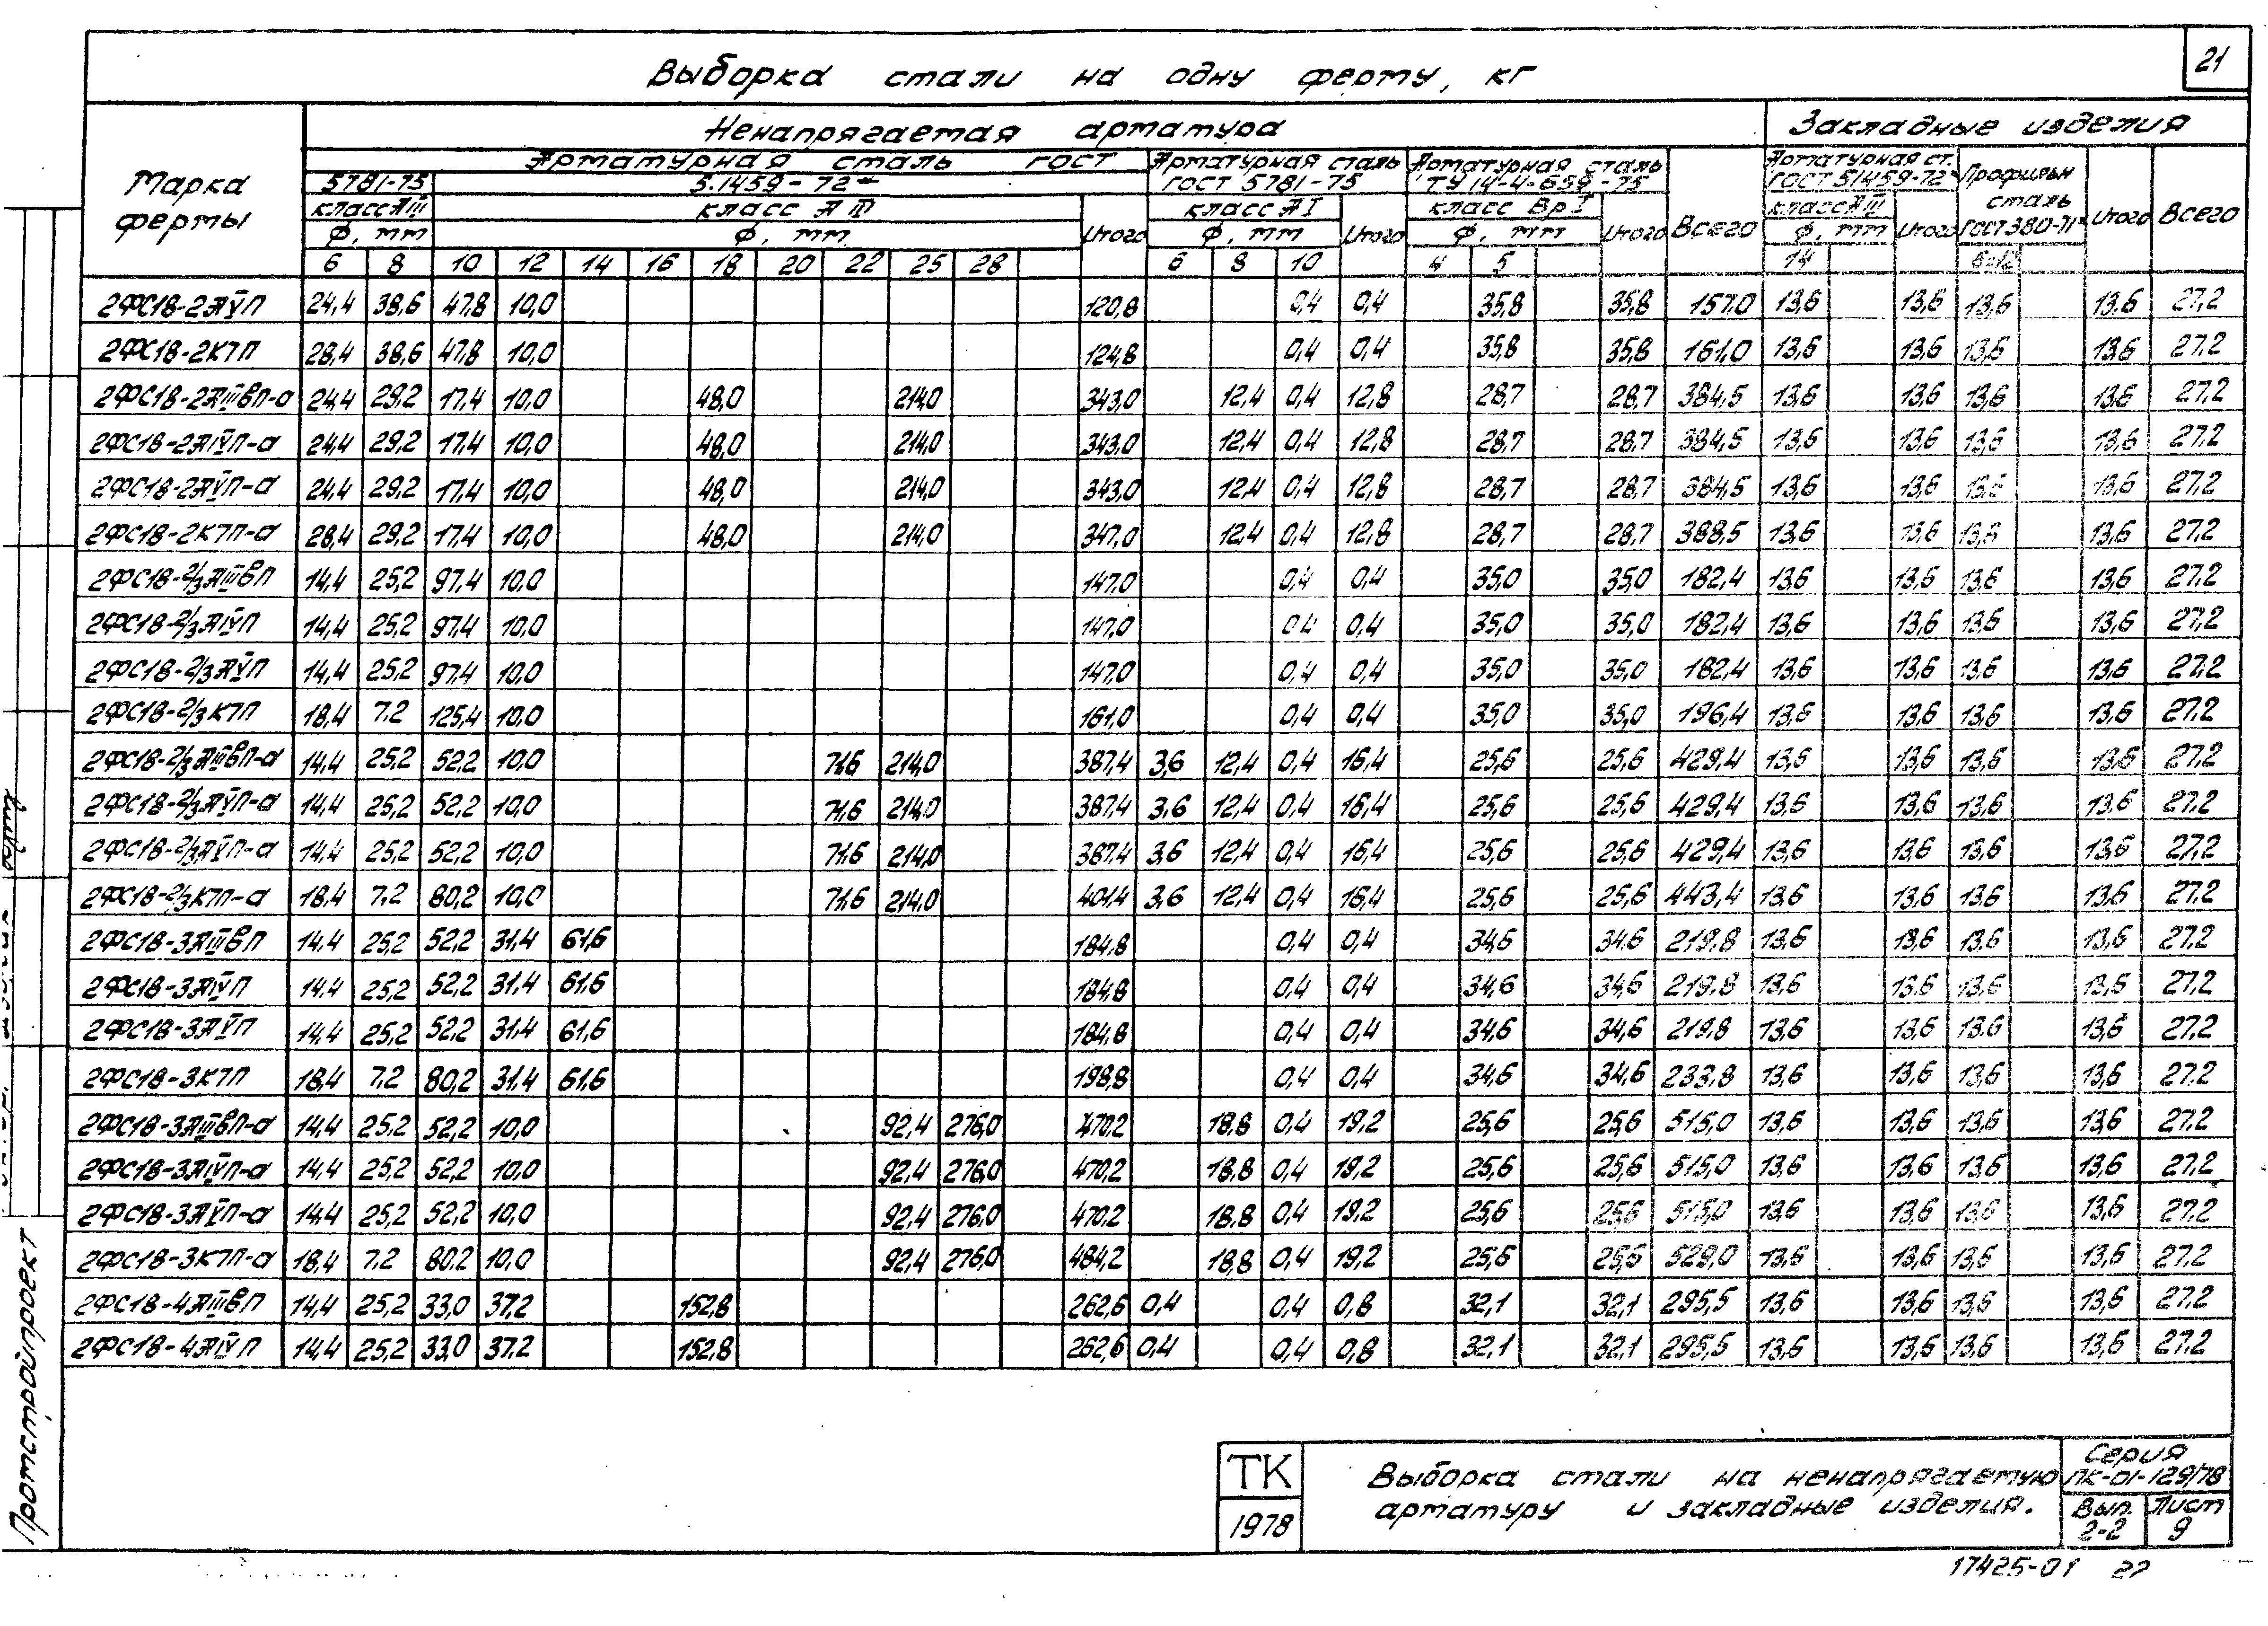 21
Выборка стали на одну ферму, кг
Марка фермы
Ненапрягаемая арматура
Закладные изделия
Арматурная сталь ГОСТ
Арматурная сталь ГОСТ 5781-75
Арматурная сталь ТУ 14-4-659-75
Всего
Арматурная ст. ГОСТ 5.1459-72*
Профильн сталь ГОСТ 380-71*
Итого
Всего
5781-75
5.1459-72*
класс АIII
класс АIII
Итого
класс АI
Итого
класс ВрI
Итого
класс АIII
Итого
ф, мм
ф, мм
ф, мм
ф, мм
ф, мм
6 8 10 12 14 16 18 20 22 25 28 6 8 10 4 5 14
2ФС18-2АVП 24,4 38,6 47,8 10,0 120,8 0,4 0,4 35,8 35,8 157,0 13,6 13,6 13,6 13,6 27,2
2ФС18-2К7П 28,4 38,6 47,8 10,0 124,8 0,4 0,4 35,8 35,8 161,0 13,6 13,6 13,6 13,6 27,2
2ФС18-2АIIIвП-а 24,4 29,2 17,4 10,0 48,0 214,0 343,0 12,4 0,4 12,8 28,7 28,7 384,5 13,6 13,6 13,6 13,6 27,2
2ФС18-2АIVП-а 24,4 29,2 17,4 10,0 48,0 214,0 343,0 12,4 0,4 12,8 28,7 28,7 384,5 13,6 13,6 13,6 13,6 27,2
2ФС18-2АVП-а 24,4 29,2 17,4 10,0 48,0 214,0 343,0 12,4 0,4 12,8 28,7 28,7 384,5 13,6 13,6 13,6 13,6 27,2
2ФС18-2К7П-а 28,4 29,2 17,4 10,0 48,0 214,0 347,0 12,4 0,4 12,8 28,7 28,7 388,5 13,6 13,6 13,6 13,6 27,2
2ФС18-2/3АIIIвП 14,4 25,2 97,4 10,0 147,0 0,4 0,4 35,0 35,0 182,4 13,6 13,6 13,6 13,6 27,2
2ФС18-2/3АIVП 14,4 25,2 97,4 10,0 147,0 0,4 0,4 35,0 35,0 182,4 13,6 13,6 13,6 13,6 27,2
2ФС18-2/3АVП 14,4 25,2 97,4 10,0 147,0 0,4 0,4 35,0 35,0 182,4 13,6 13,6 13,6 13,6 27,2
2ФС18-2/3К7П 18,4 7,2 125,4 10,0 161,0 0,4 0,4 35,0 35,0 196,4 13,6 13,6 13,6 13,6 27,2
2ФС18-2/3АIIIвП-а 14,4 25,2 52,2 10,0 71,6 214,0 387,4 3,6 12,4 0,4 16,4 25,6 25,6 429,4 13,6 13,6 13,6 13,6 27,2
2ФС18-2/3АIVП-а 14,4 25,2 52,2 10,0 71,6 214,0 387,4 3,6 12,4 0,4 16,4 25,6 25,6 429,4 13,6 13,6 13,6 13,6 27,2
2ФС18-2/3АVП-а 14,4 25,2 52,2 10,0 71,6 214,0 387,4 3,6 12,4 0,4 16,4 25,6 25,6 429,4 13,6 13,6 13,6 13,6 27,2
2ФС18-2/3К7П-а 18,4 7,2 80,2 10,0 71,6 214,0 401,4 3,6 12,4 0,4 16,4 25,6 25,6 443,4 13,6 13,6 13,6 13,6 27,2
2ФС18-3АIIIвП 14,4 25,2 52,2 31,4 61,6 184,8 0,4 0,4 34,6 34,6 219,8 13,6 13,6 13,6 13,6 27,2
2ФС18-3АIVП 14,4 25,2 52,2 31,4 61,6 184,8 0,4 0,4 34,6 34,6 219,8 13,6 13,6 13,6 13,6 27,2
2ФС18-3АVП 14,4 25,2 52,2 31,4 61,6 184,8 0,4 0,4 34,6 34,6 219,8 13,6 13,6 13,6 13,6 27,2
2ФС18-3К7П 18,4 7,2 80,2 31,4 61,6 198,8 0,4 0,4 34,6 34,6 233,8 13,6 13,6 13,6 13,6 27,2
2ФС18-3АIIIвП-а 14,4 25,2 52,2 10,0 92,4 276,0 470,2 18,8 0,4 19,2 25,6 25,6 515,0 13,6 13,6 13,6 13,6 27,2
2ФС18-3АIVП-а 14,4 25,2 52,2 10,0 92,4 276,0 470,2 18,8 0,4 19,2 25,6 25,6 515,0 13,6 13,6 13,6 13,6 27,2
2ФС18-3АVП-а 14,4 25,2 52,2 10,0 92,4 276,0 470,2 18,8 0,4 19,2 25,6 25,6 515,0 13,6 13,6 13,6 13,6 27,2
2ФС18-3К7П-а 18,4 7,2 80,2 10,0 92,4 276,0 484,2 18,8 0,4 19,2 25,6 25,6 529,0 13,6 13,6 13,6 13,6 27,2
2ФС18-4АIIIвП 14,4 25,2 33,0 37,2 152,8 262,6 0,4 0,4 0,8 32,1 32,1 295,5 13,6 13,6 13,6 13,6 27,2
2ФС18-4АIVП 14,4 25,2 33,0 37,2 152,8 262,6 0,4 0,4 0,8 32,1 32,1 295,5 13,6 13,6 13,6 13,6 27,2
Промстройпроект
ТК
1978
Выборка стали на ненапрягаемую
арматуру и закладные изделия.
Серия
ПК-01-129/78
Вып. 2-2
Лист 9
17425-01 22